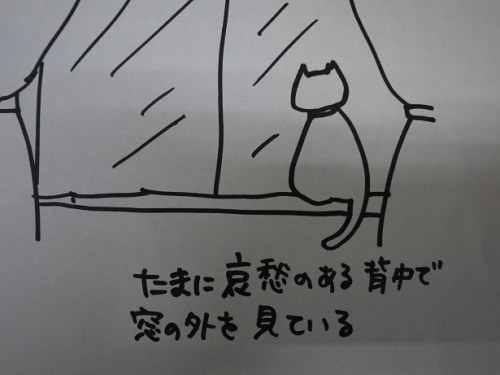 たまに哀愁のある背中で
窓の外を見ている